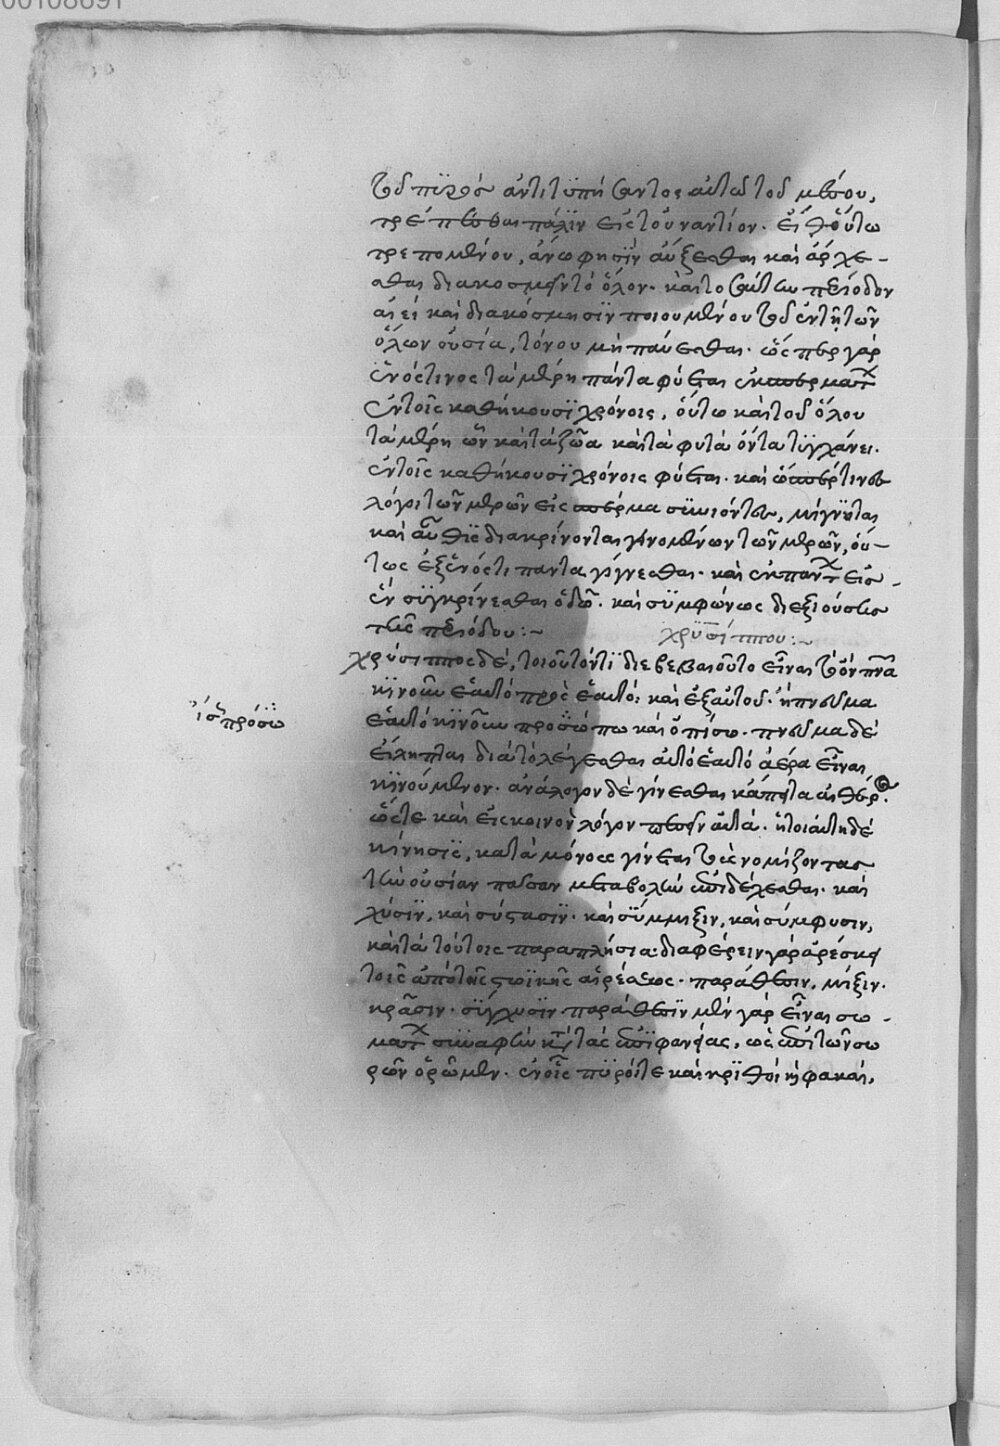 00108691
τοῦ πυρὸς ἀντιτυπήσαντος αὐτῶ τοῦ μέσου,
τρέπεσθαι πάλϊν εἰς τοὐναντίον. εἶθ οὕτω
τρεπομένου, ἄνω φησῒν αὔξεσθαι καὶ ἄρχε -
σθαι διακοσμεῖν τὸ ὅλον. καὶ τοιαύτην περίοδον
αἰεὶ καὶ διακόσμησϊν ποιουμένου τοῦ ἐν τῆ τῶν
ὅλων οὐσία, τόνου μὴ παύεσθαι. ὥσπερ γὰρ
ἑνός τινος τὰ μέρη πάντα φύεται ἐκ σπερμάτων
ἐν τοῖς καθήκουσϊ χρόνοις, οὕτω καὶ τοῦ ὅλου
τὰ μέρη ὧν καὶ τὰ ζῶα καὶ τὰ φυτὰ ὄντα τϋγχάνει.
ἐν τοῖς καθήκουσϊ χρόνοις φύεται. καὶ ὥσπερ τινες
λόγοι τῶν μερῶν εἰς σπέρμα συνιόντες, μίγνϋται
καὶ αὖθις διακρίνονται γενομένων τῶν μερῶν, οὕ -
τως ἐξ ἑνός τι πάντα γίγνεσθαι. καὶ ἐκ πάντων εἰσ -
ἓν σϋγκρίνεσθαι ὁδῶ. καὶ συμφώνως διεξιούσης
τῆς περιόδου :~
χρϋσίππου :~
χρύσιππος δὲ, τοιοῦτόν τϊ διεβεβαιοῦτο εἶναι τὸ ὂν πνεῦμα
κϊνοῦν ἑαυτὸ πρὸς ἑαυτό, καὶ ἐξ αὐτοῦ. ἢ πνεῦμα
ἑαυτὸ κϊνοῦν προσώπω καὶ ὀπίσω. πνεῦμα δὲ
ἴσ προσω
εἴληπται διὰ τὸ λέγεσθαι αὐτὸ ἑαυτὸ ἀέρα εἶναι
κϊνούμενον. ἀνάλογον δὲ γίνεσθαι κἄπειτα αἰθέρος.
ὥστε καὶ εἰς κοινὸν λόγον πεσεῖν αὐτά. ἡ τοιαύτη δὲ
κίνησις, κατὰ μόνους γίνεται τοὺς νομίζοντας
τὴν οὐσίαν πᾶσαν μεταβολὴν ἐπιδέχεσθαι. καὶ
χύσϊν, καὶ σύστασϊν. καὶ σϋμμιξιν, καὶ σύμφυσιν,
καὶ τὰ τούτοις παραπλήσια. διαφέρειν γὰρ ἀρέσκει
τοῖς ἀπὸ τῆς στωϊκῆς αἱρέσεως. παράθεσιν, μίξιν.
κρᾶσιν. σϋγχυσϊν. παράθεσϊν μὲν γὰρ εἶναι σω -
μάτων σϋναφὴν κατὰ τὰς ἐπϊφανείας, ὡς ἐπὶ τῶν σω
ρῶν ὁρῶμεν. ἐν οἷς πϋροί τε καὶ κρϊθαὶ ἢ φακαὶ,